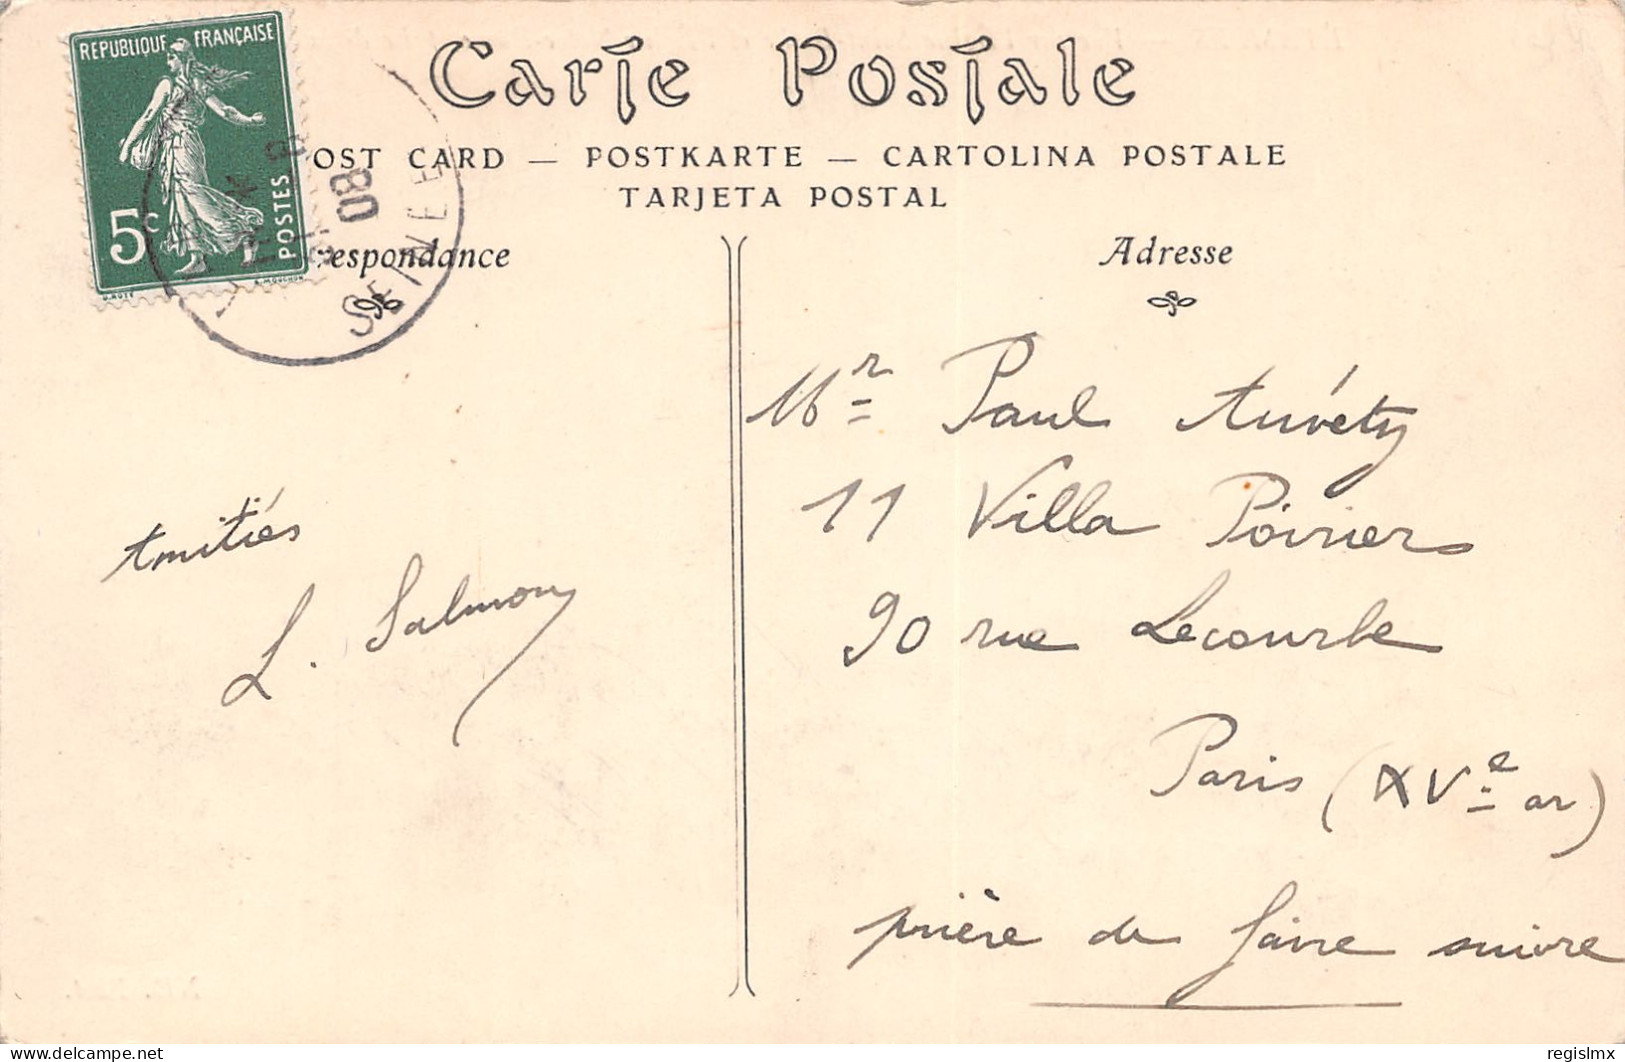 REPUBLIQUE FRANÇAISE
5c
POSTES
Carte Postale
OST CARD — POSTKARTE — CARTOLINA POSTALE
TARJETA POSTAL
respondance
Adresse
08
SEINE
Mr Paul Auvéty
11 Villa Poiriers
90 rue Lecourbe
Paris (XVe ar)
prière de faire suivre
Amitiés
L. Salmon
delcampe.net
regislmx